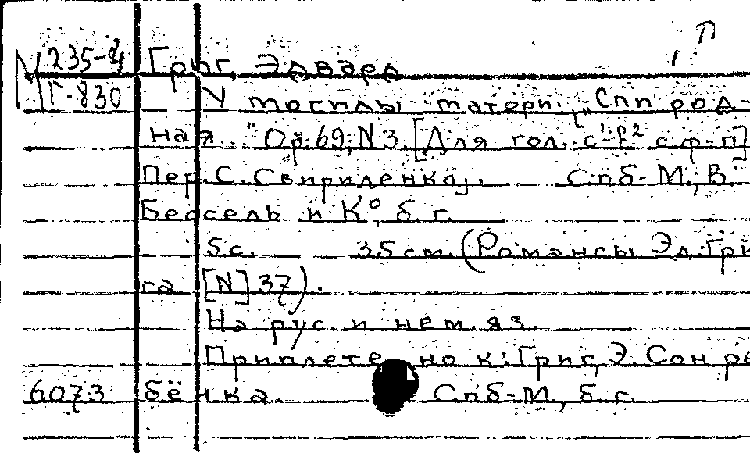 П
М 235-4 Григ, Эдвард
Г-830 У могилы матери. „Спи род-
ная." Ор. 69, N 3. [Для гол. с¹-f² с ф-п]
Пер. С. Свириденко. Спб-М., В.
Бессель и К°, б. г.
5 с. 35 см. (Романсы Эд. Гри-
га [N] 37).
На рус. и нем. яз.
Приплетено к: Григ, Э. Сон ре-
6073 бёнка. Спб-М, б. г.